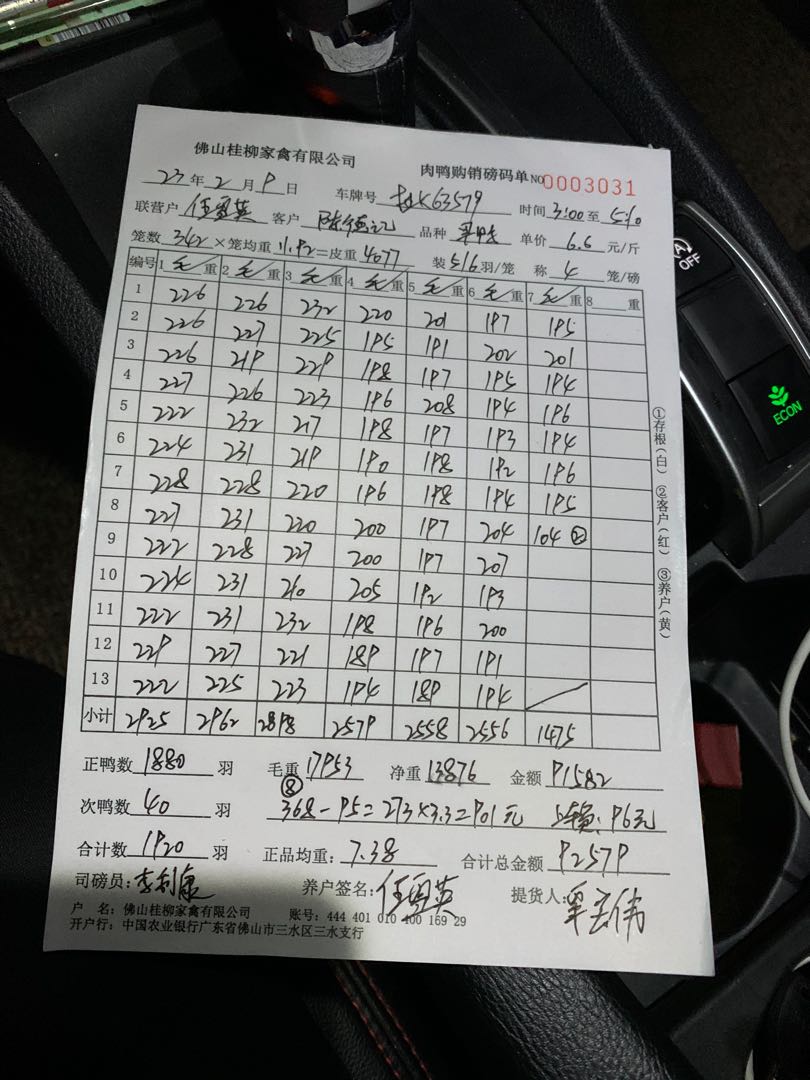 佛山桂柳家禽有限公司 肉鸭购销磅码单 NO 0003031
23年2月9日 车牌号 K63579 时间 3:00 至 5:10
联营户 伍雪英 客户 陈德记 品种 单价 6.6 元/斤
笼数 342 ×笼均重 11.92 =皮重 4077 装 5/6 羽/笼 称 4 笼/磅
编号 1 毛重 2 毛重 3 毛重 4 毛重 5 毛重 6 毛重 7 毛重 8 重
1 226 226 232 220 201 197 195
2 226 227 225 195 191 202 201
3 226 219 229 198 197 195 194
4 227 226 223 196 208 194 196
5 222 232 217 198 197 193 194
6 224 231 219 190 198 192 196
7 228 228 220 196 198 194 195
8 227 231 220 200 197 204 104 ②
9 222 228 227 200 197 207
10 224 231 210 205 192 193
11 222 231 232 198 196 200
12 229 227 221 189 197 191
13 222 225 223 194 189 194
小计 2925 2962 2898 2579 2558 2556 1475
①存根(白) ②客户(红) ③养户(黄)
正鸭数 1880 羽 毛重 17953 净重 13876 金额 91582
次鸭数 40 羽 ⑧ 368-95=273×3.3=901元 96元
合计数 1920 羽 正品均重: 7.38 合计总金额 92579
司磅员: 李利康 养户签名: 伍雪英 提货人:
户 名: 佛山桂柳家禽有限公司 账号: 444 401 010 400 169 29
开户行: 中国农业银行广东省佛山市三水区三水支行
A
OFF
ECON